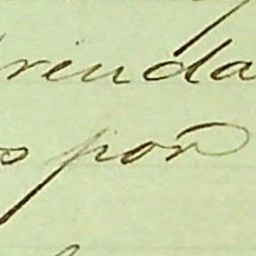 renda
s por